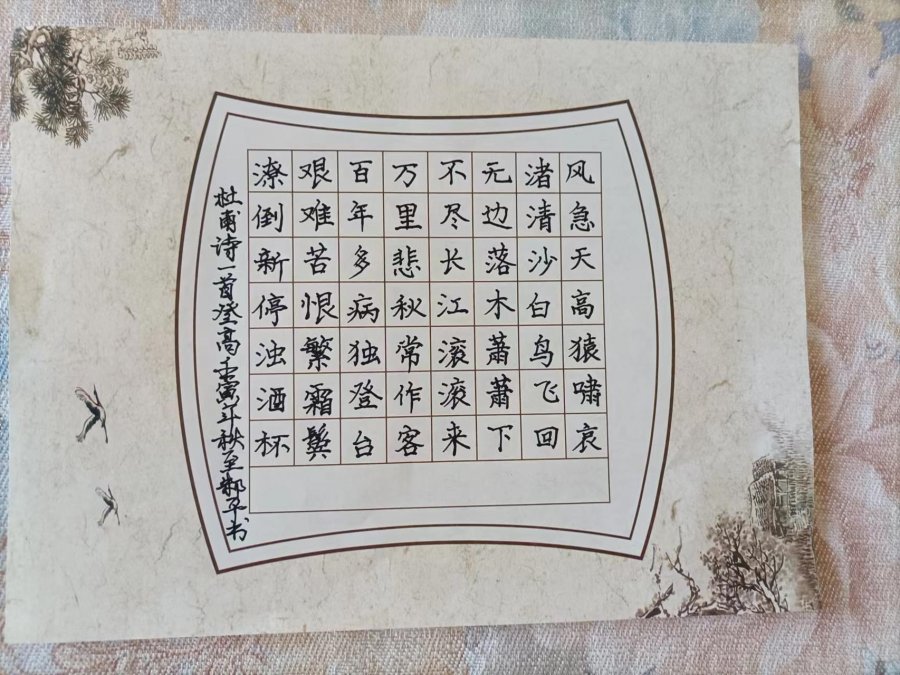 风急天高猿啸哀
渚清沙白鸟飞回
无边落木萧萧下
不尽长江滚滚来
万里悲秋常作客
百年多病独登台
艰难苦恨繁霜鬓
潦倒新停浊酒杯
杜甫诗一首登高壬寅年秋至郝平书